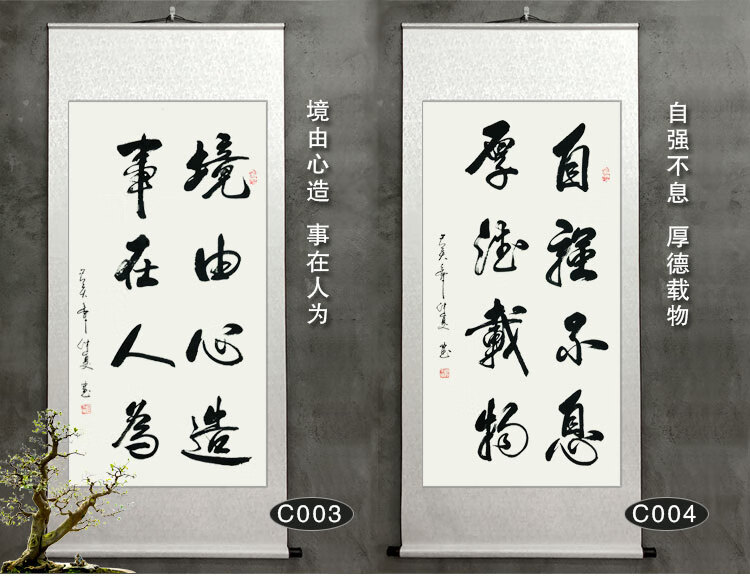 境由心造
事在人为
境由心造 事在人為
C003
自强不息
厚德载物
自強不息 厚德載物
C004